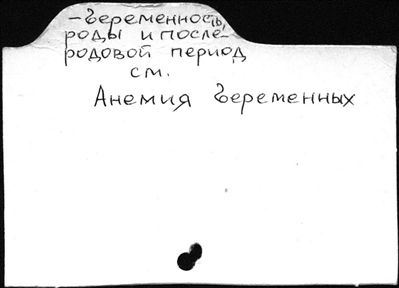 - беременность,
роды и после-
родовой период
см.
Анемия беременных